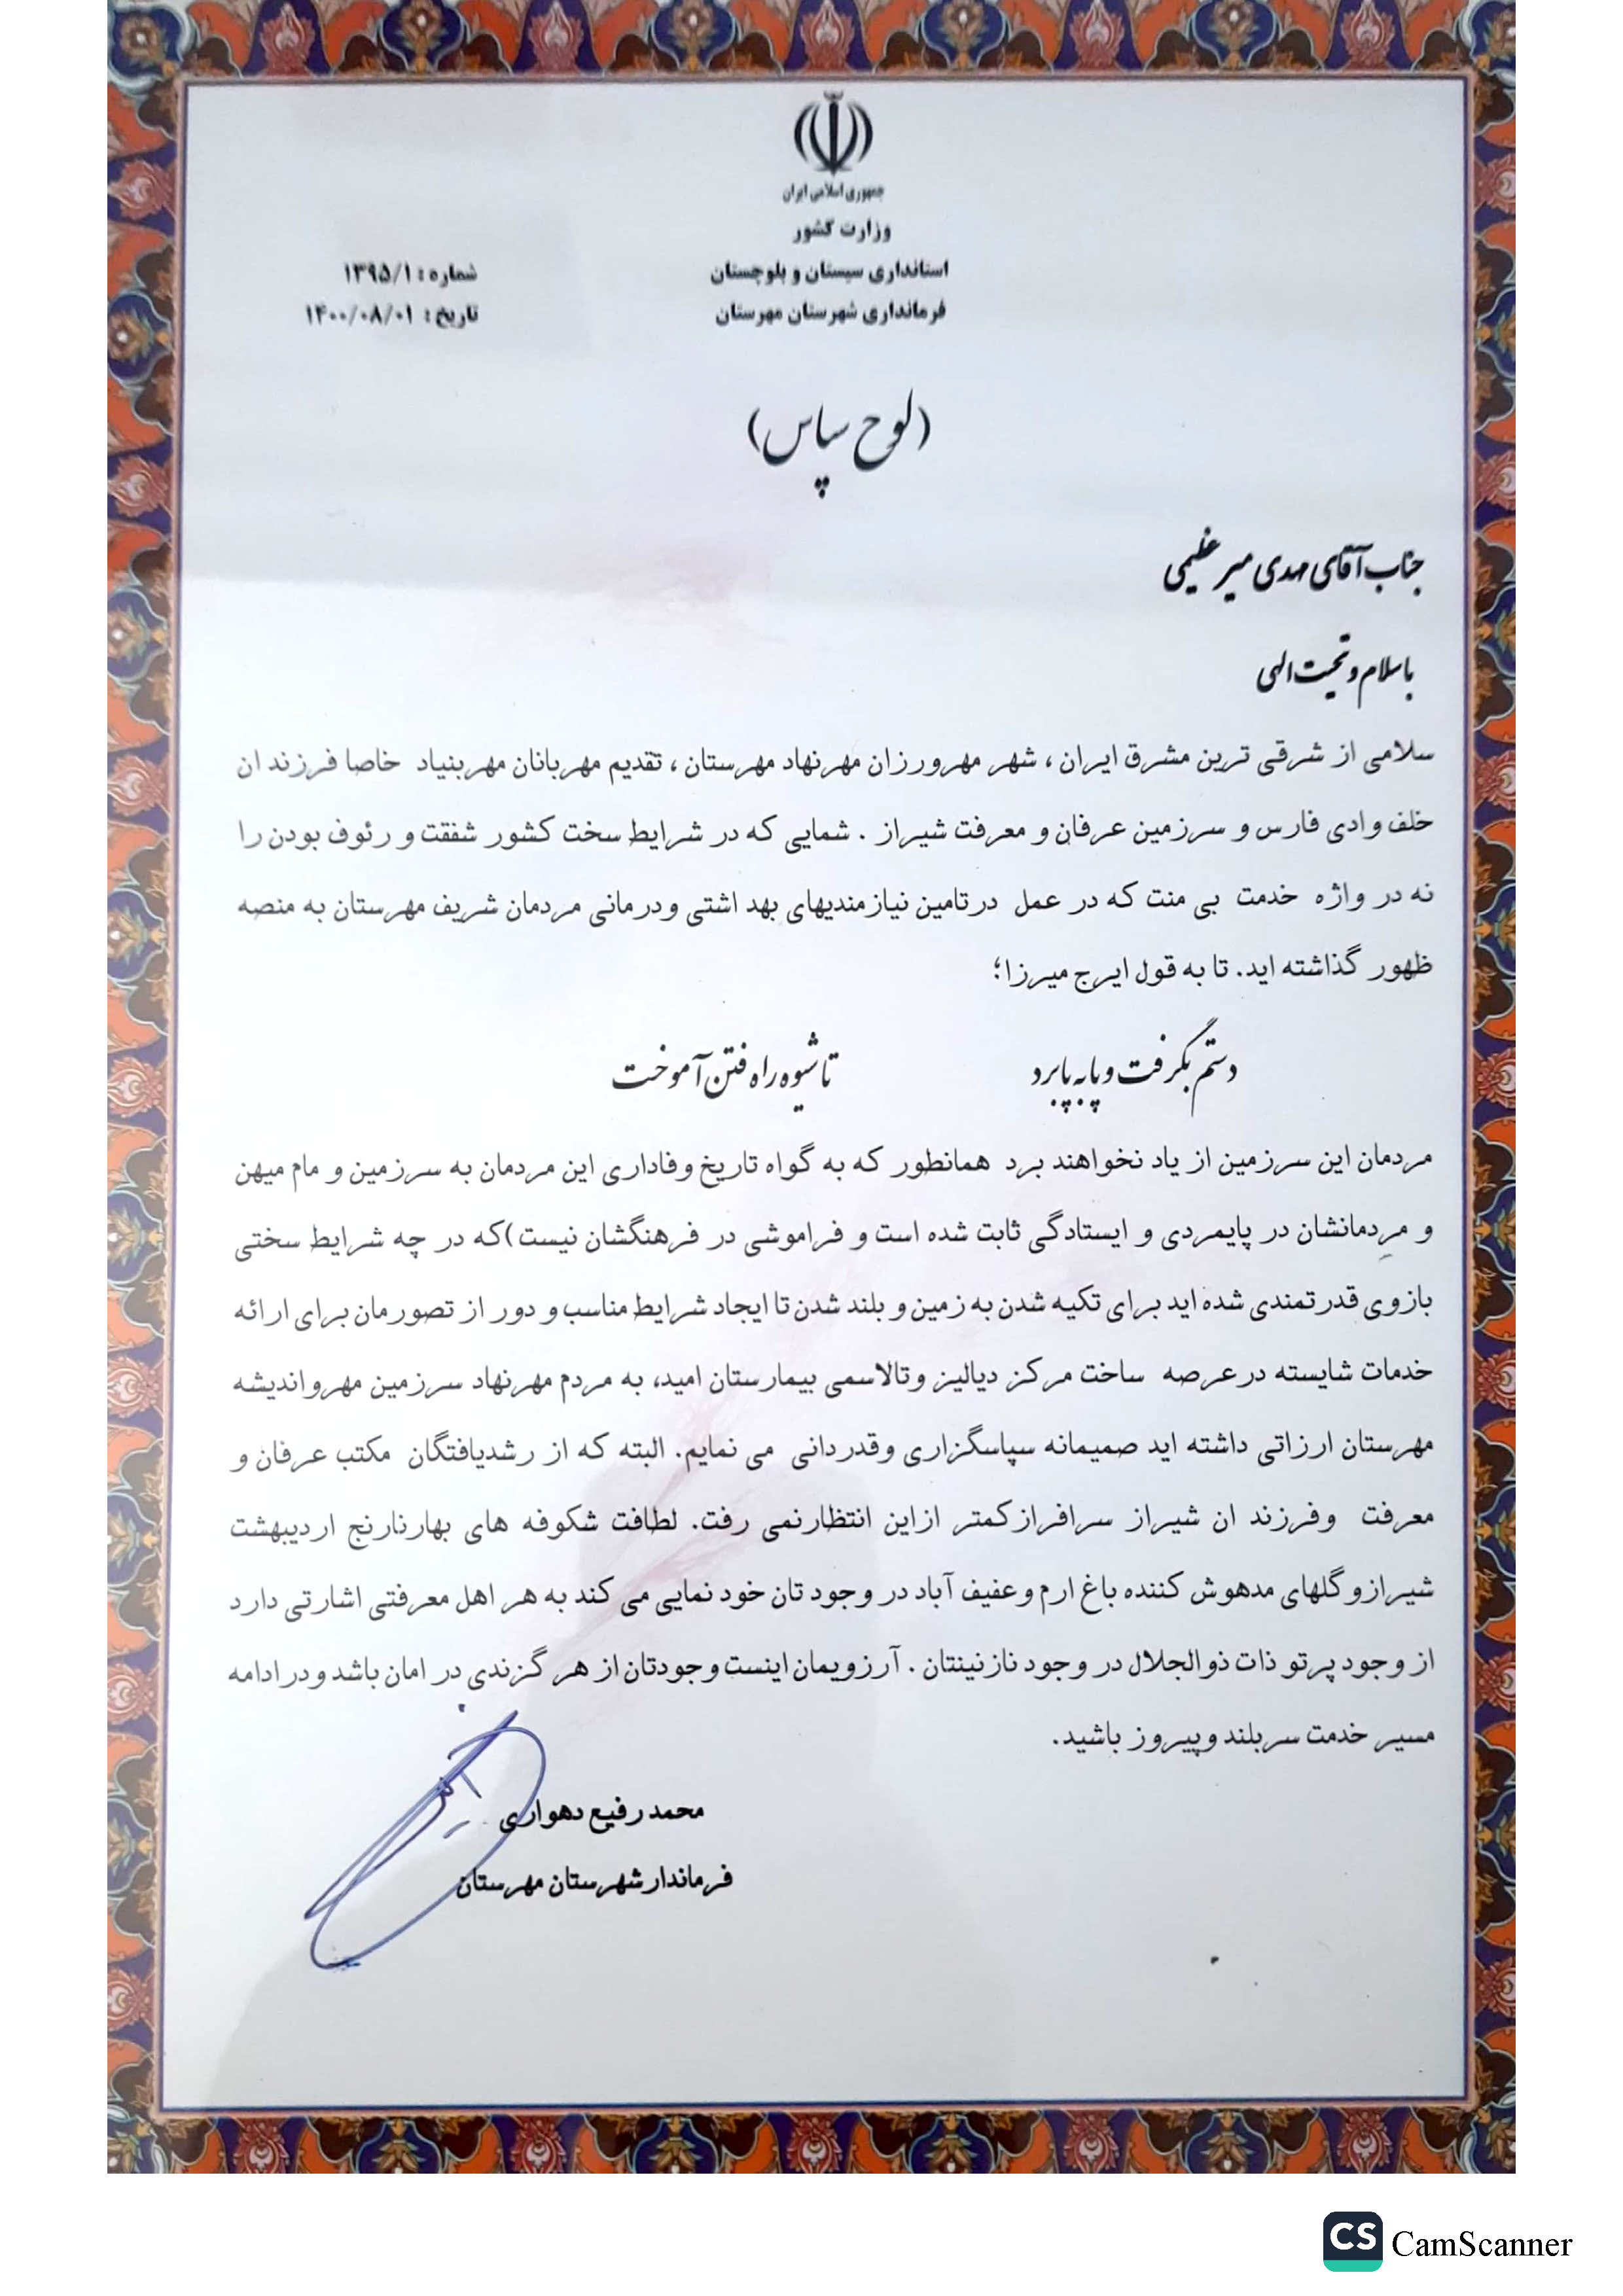 جمهوری اسلامی ایران
وزارت کشور
استانداری سیستان و بلوچستان
فرمانداری شهرستان مهرستان
شماره : ۱۳۹۵/۱
تاریخ : ۱۴۰۰/۰۸/۰۱
(لوح سپاس)
جناب آقای مهدی میر غلیمی
با سلام و تحیت الهی
سلامی از شرقی ترین مشرق ایران ، شهر مهرورزان مهرنهاد مهرستان ، تقدیم مهربانان مهربنیاد خاصا فرزند ان
خلف وادی فارس و سرزمین عرفان و معرفت شیراز . شمایی که در شرایط سخت کشور شفقت و رئوف بودن را
نه در واژه خدمت بی منت که در عمل درتامین نیازمندیهای بهد اشتی ودرمانی مردمان شریف مهرستان به منصه
ظهور گذاشته اید. تا به قول ایرج میرزا؛
دستم بگرفت و پا به پا برد تا شیوه راه رفتن آموخت
مردمان این سرزمین از یاد نخواهند برد همانطور که به گواه تاریخ وفاداری این مردمان به سرزمین و مام میهن
و مردمانشان در پایمردی و ایستادگی ثابت شده است و فراموشی در فرهنگشان نیست)که در چه شرایط سختی
بازوی قدرتمندی شده اید برای تکیه شدن به زمین و بلند شدن تا ایجاد شرایط مناسب و دور از تصورمان برای ارائه
خدمات شایسته درعرصه ساخت مرکز دیالیز وتالاسمی بیمارستان امید، به مردم مهرنهاد سرزمین مهرواندیشه
مهرستان ارزاتی داشته اید صمیمانه سپاسگزاری وقدردانی می نمایم. البته که از رشدیافتگان مکتب عرفان و
معرفت وفرزند ان شیراز سرافرازکمتر ازاین انتظارنمی رفت. لطافت شکوفه های بهارنارنج اردیبهشت
شیرازوگلهای مدهوش کننده باغ ارم وعفیف آباد در وجود تان خود نمایی می کند به هر اهل معرفتی اشارتی دارد
از وجود پرتو ذات ذوالجلال در وجود نازنینتان . آرزویمان اینست وجودتان از هر گزندی در امان باشد ودرادامه
مسیر خدمت سربلند وپیروز باشید.
محمد رفیع دهواری
فرماندار شهرستان مهرستان
CS CamScanner